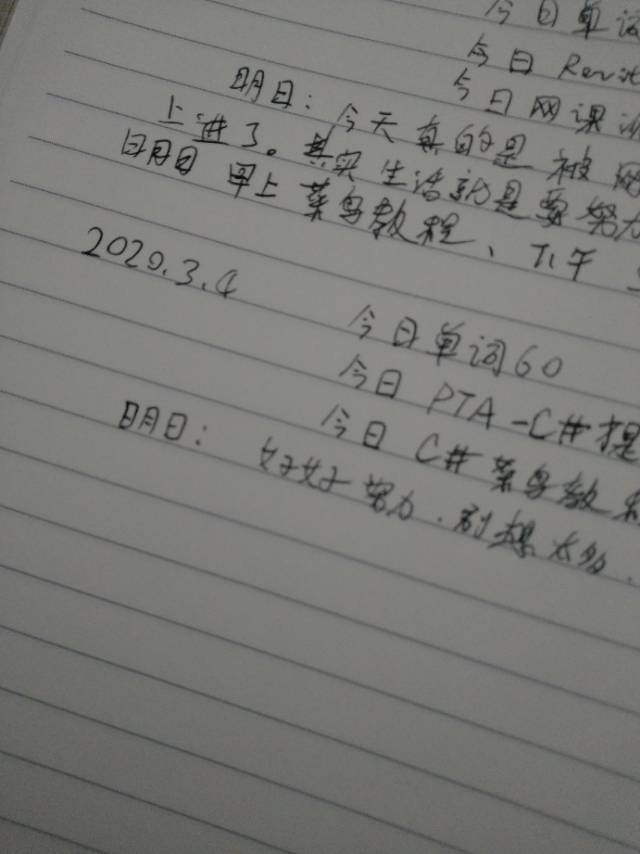 今日单词
今日 Revit
今日网课
明日：今天真的是被网
上进了。其实生活就是要努力
明日 早上 菜鸟教程、下午
2020.3.4
今日单词60
今日 PTA-C#提
今日 C#菜鸟教程
明日： 好好努力.别想太多.